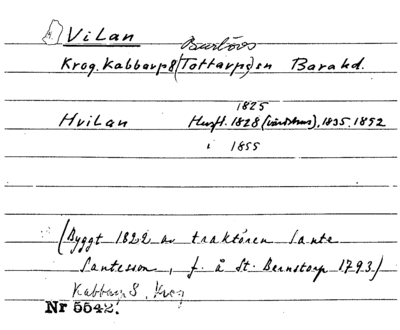 Vilan
Burlövs
Krog. Kabbarp 8 (Tottarps) sn Bara hd.
1825
Hvilan Husfl. 1828 (värdshus), 1835. 1852
i 1855
(Byggt 1822 av traktören Sante
Santesson, f. å St. Bernstorp 1793)
Kabbarp 8. Krog
Nr 5542.